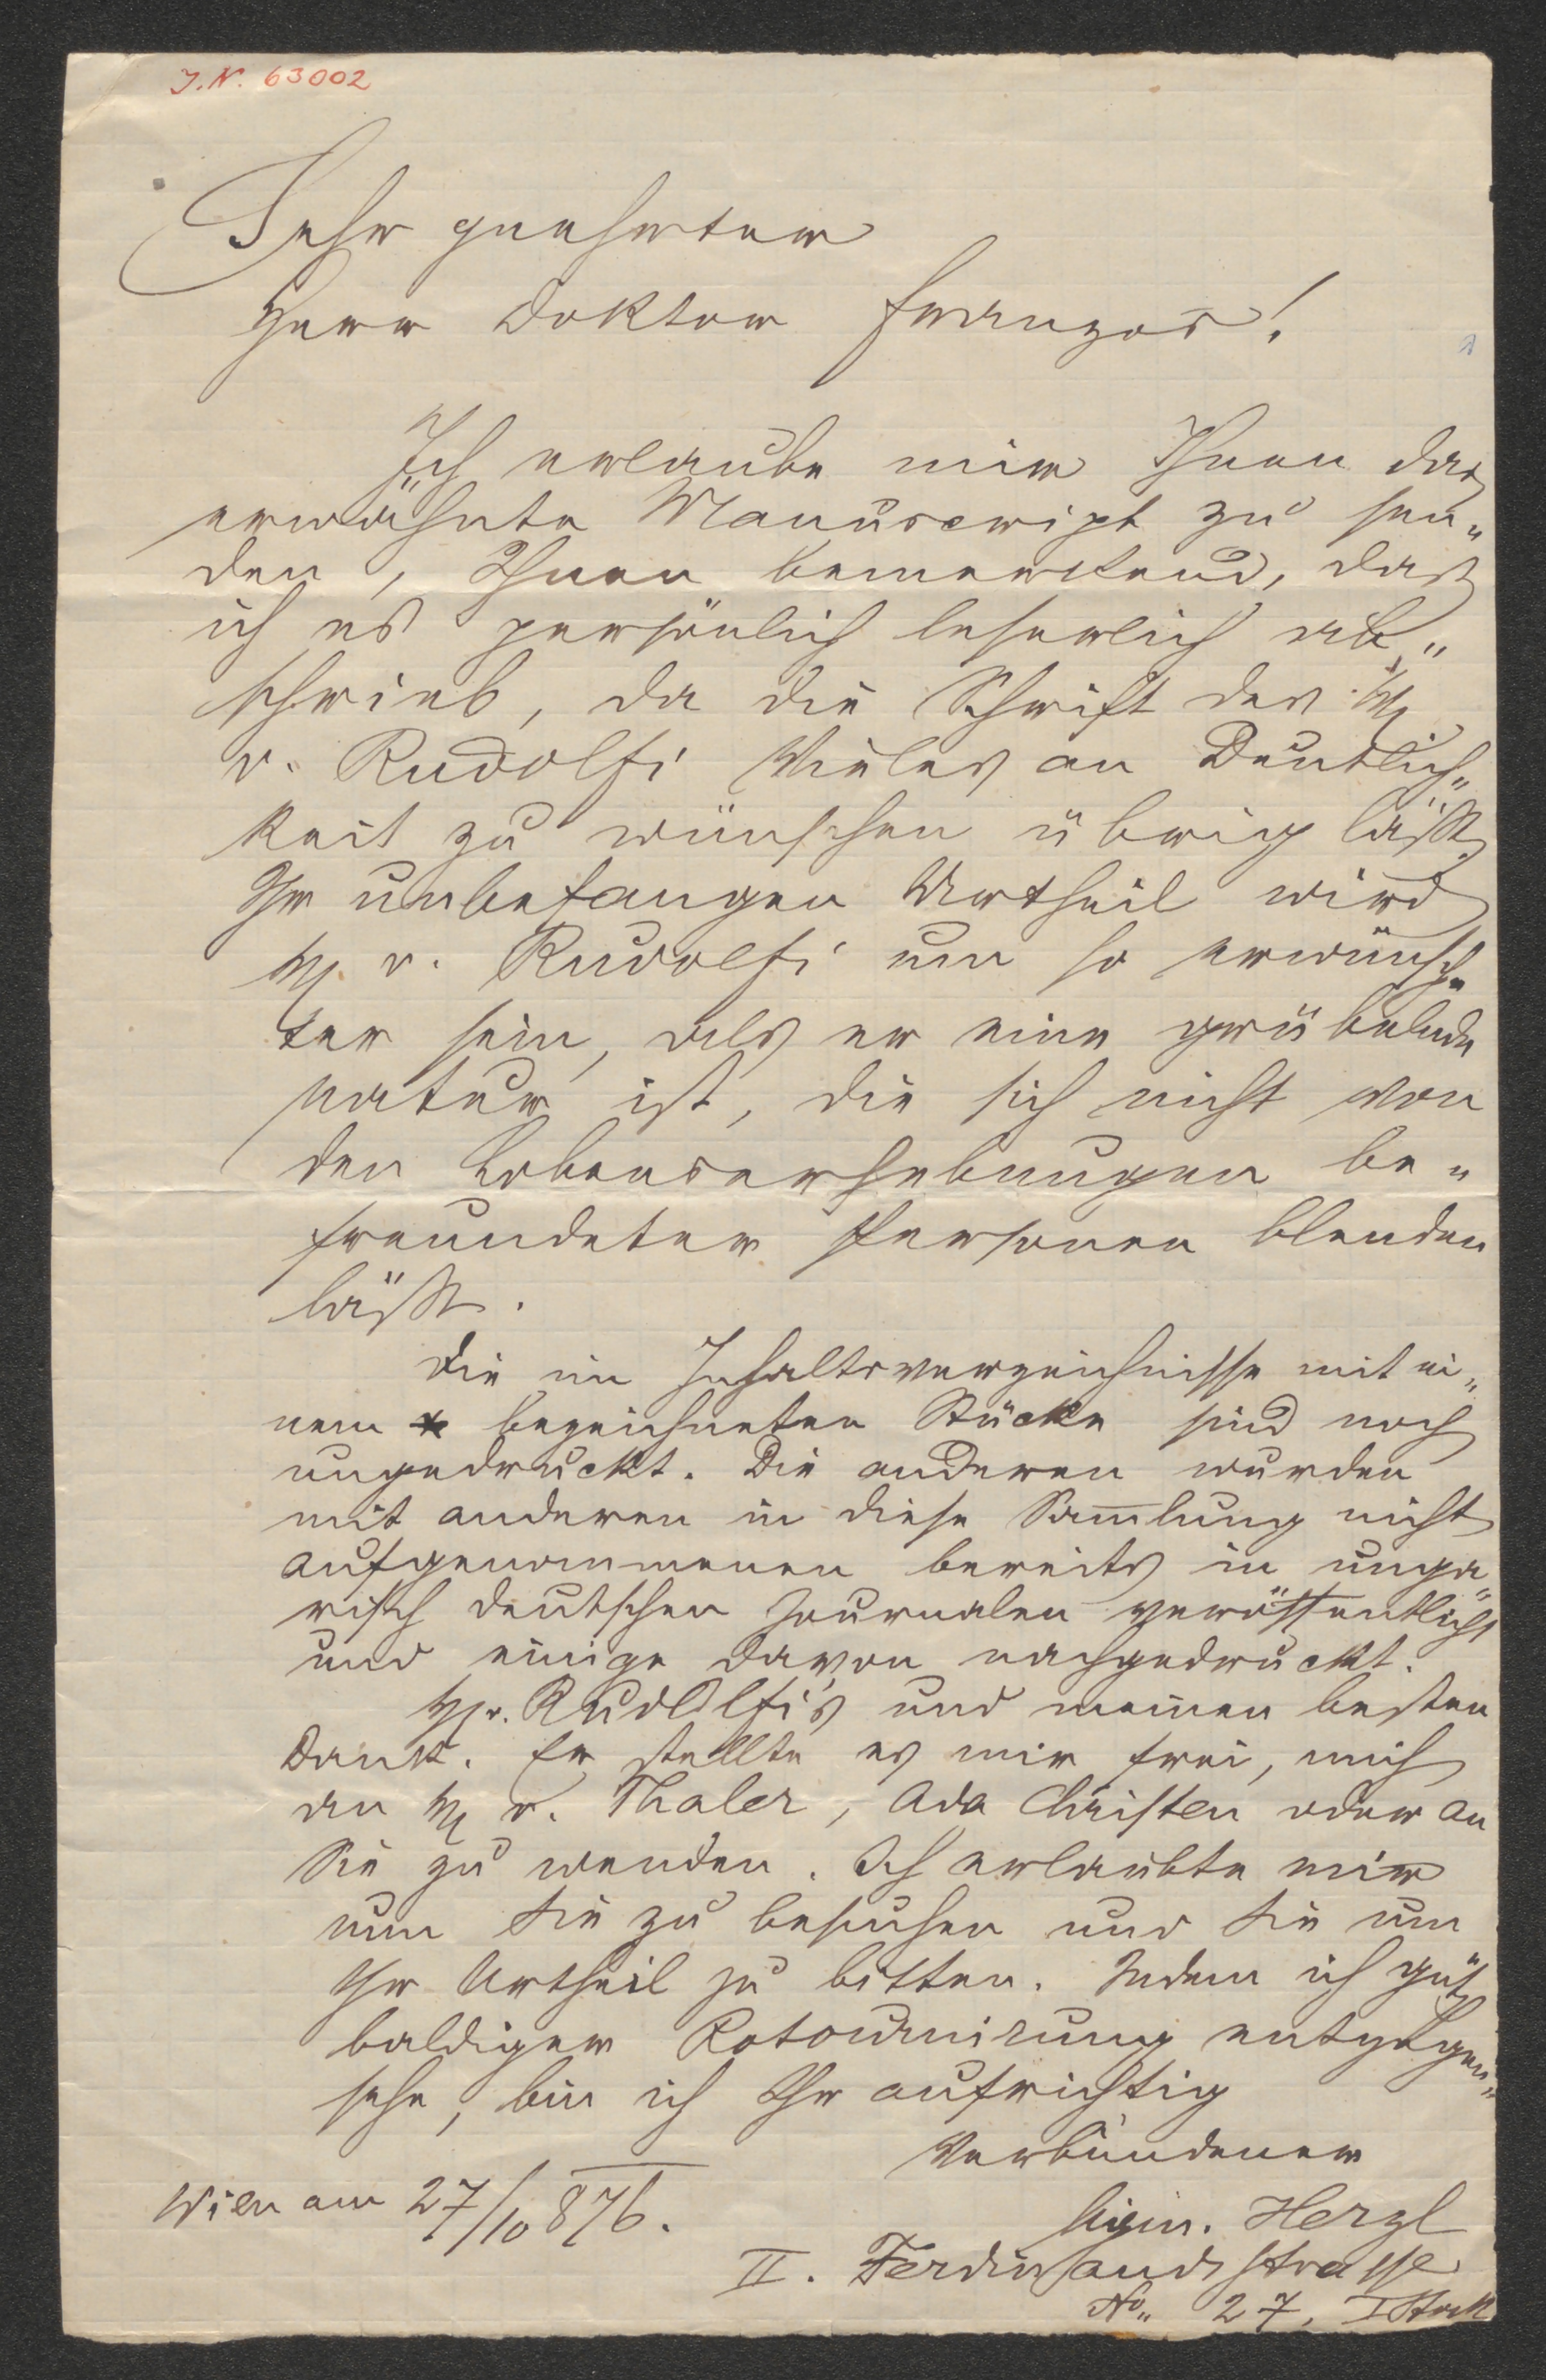 J.N. 63002
Sehr geehrter
Herr Doktor Franzos!
Ich erlaube mir Ihnen das
erwähnte Manuscript zu sen„
den, Ihnen bemerkend, daß
ich es persönlich leserlich ab„
schrieb, da die Schrift des H
v. Rudolfi Vieles an Deutlich„
keit zu wünschen übrig läßt.
Ihr unbefangen Urtheil wird
H. v. Rudolfi um so erwünsch„
ter sein, als er eine grübelnde
Natur ist, die sich nicht von
den Lobenserhebungen be„
freundeter Personen blenden
läßt.
Die im Inhaltsverzeichnisse mit ei„
nem * bezeichneten Stücke sind noch
ungedruckt. Die anderen wurden
mit anderen in diese Sam̅lung nicht
aufgenommenen bereits in unga„
risch deutschen Journalen veröffentlicht
und einige davon nachgedruckt.
H v. Rudolfi's und meinen besten
Dank. Er stellte es mir frei, mich
an H v. Thaler, Ada Christen oder an
Sie zu wenden. Ich erlaubte mir
nun Sie zu besuchen und Sie um
Ihr Urtheil zu bitten. Indem ich güt.
baldiger Retournirung entgegen„
sehe, bin ich Ihr aufrichtig
Verbundener
Wien am 27/10 876.
Sigm. Herzl
II. Ferdinandsstrasse
No„ 27, I Stock